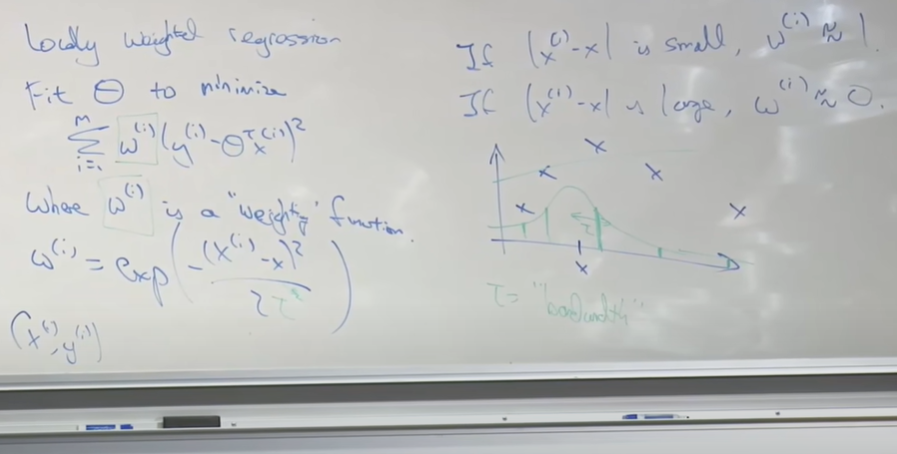 Locally weighted regression
Fit Θ to minimize
M
∑ ω^(i) (y^(i) - Θ^T x^(i))^2
i=1
Where ω^(i) is a "weighting" function.
ω^(i) = exp( -(x^(i) - x)^2 / 2τ^2 )
(x^(i), y^(i))
If |x^(i) - x| is small, ω^(i) ≈ 1.
If |x^(i) - x| is large, ω^(i) ≈ 0.
τ
x
τ = "bandwidth"